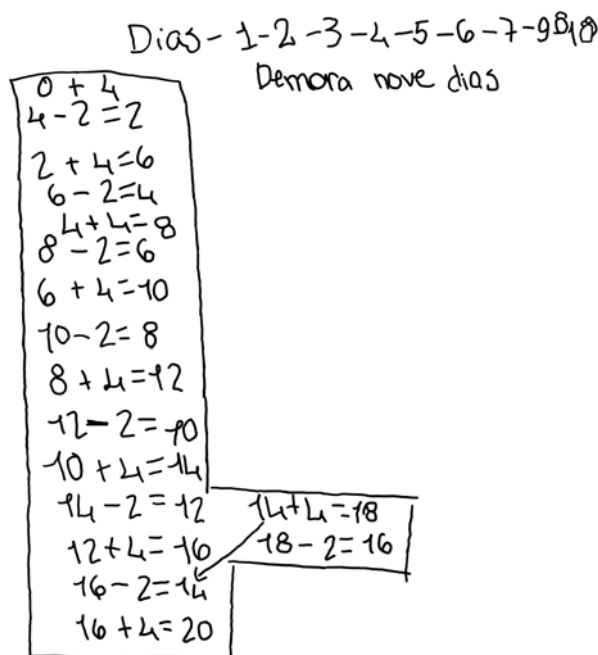 Dias - 1-2-3-4-5-6-7-9
Demora nove dias
0 + 4
4-2=2
2 + 4=6
6-2=4
4+4=8
8-2=6
6 + 4=10
10-2= 8
8 + 4=12
12-2=10
10+4=14
14-2=12
12+4=16
16-2=14
14+4=18
18-2=16
16+4=20